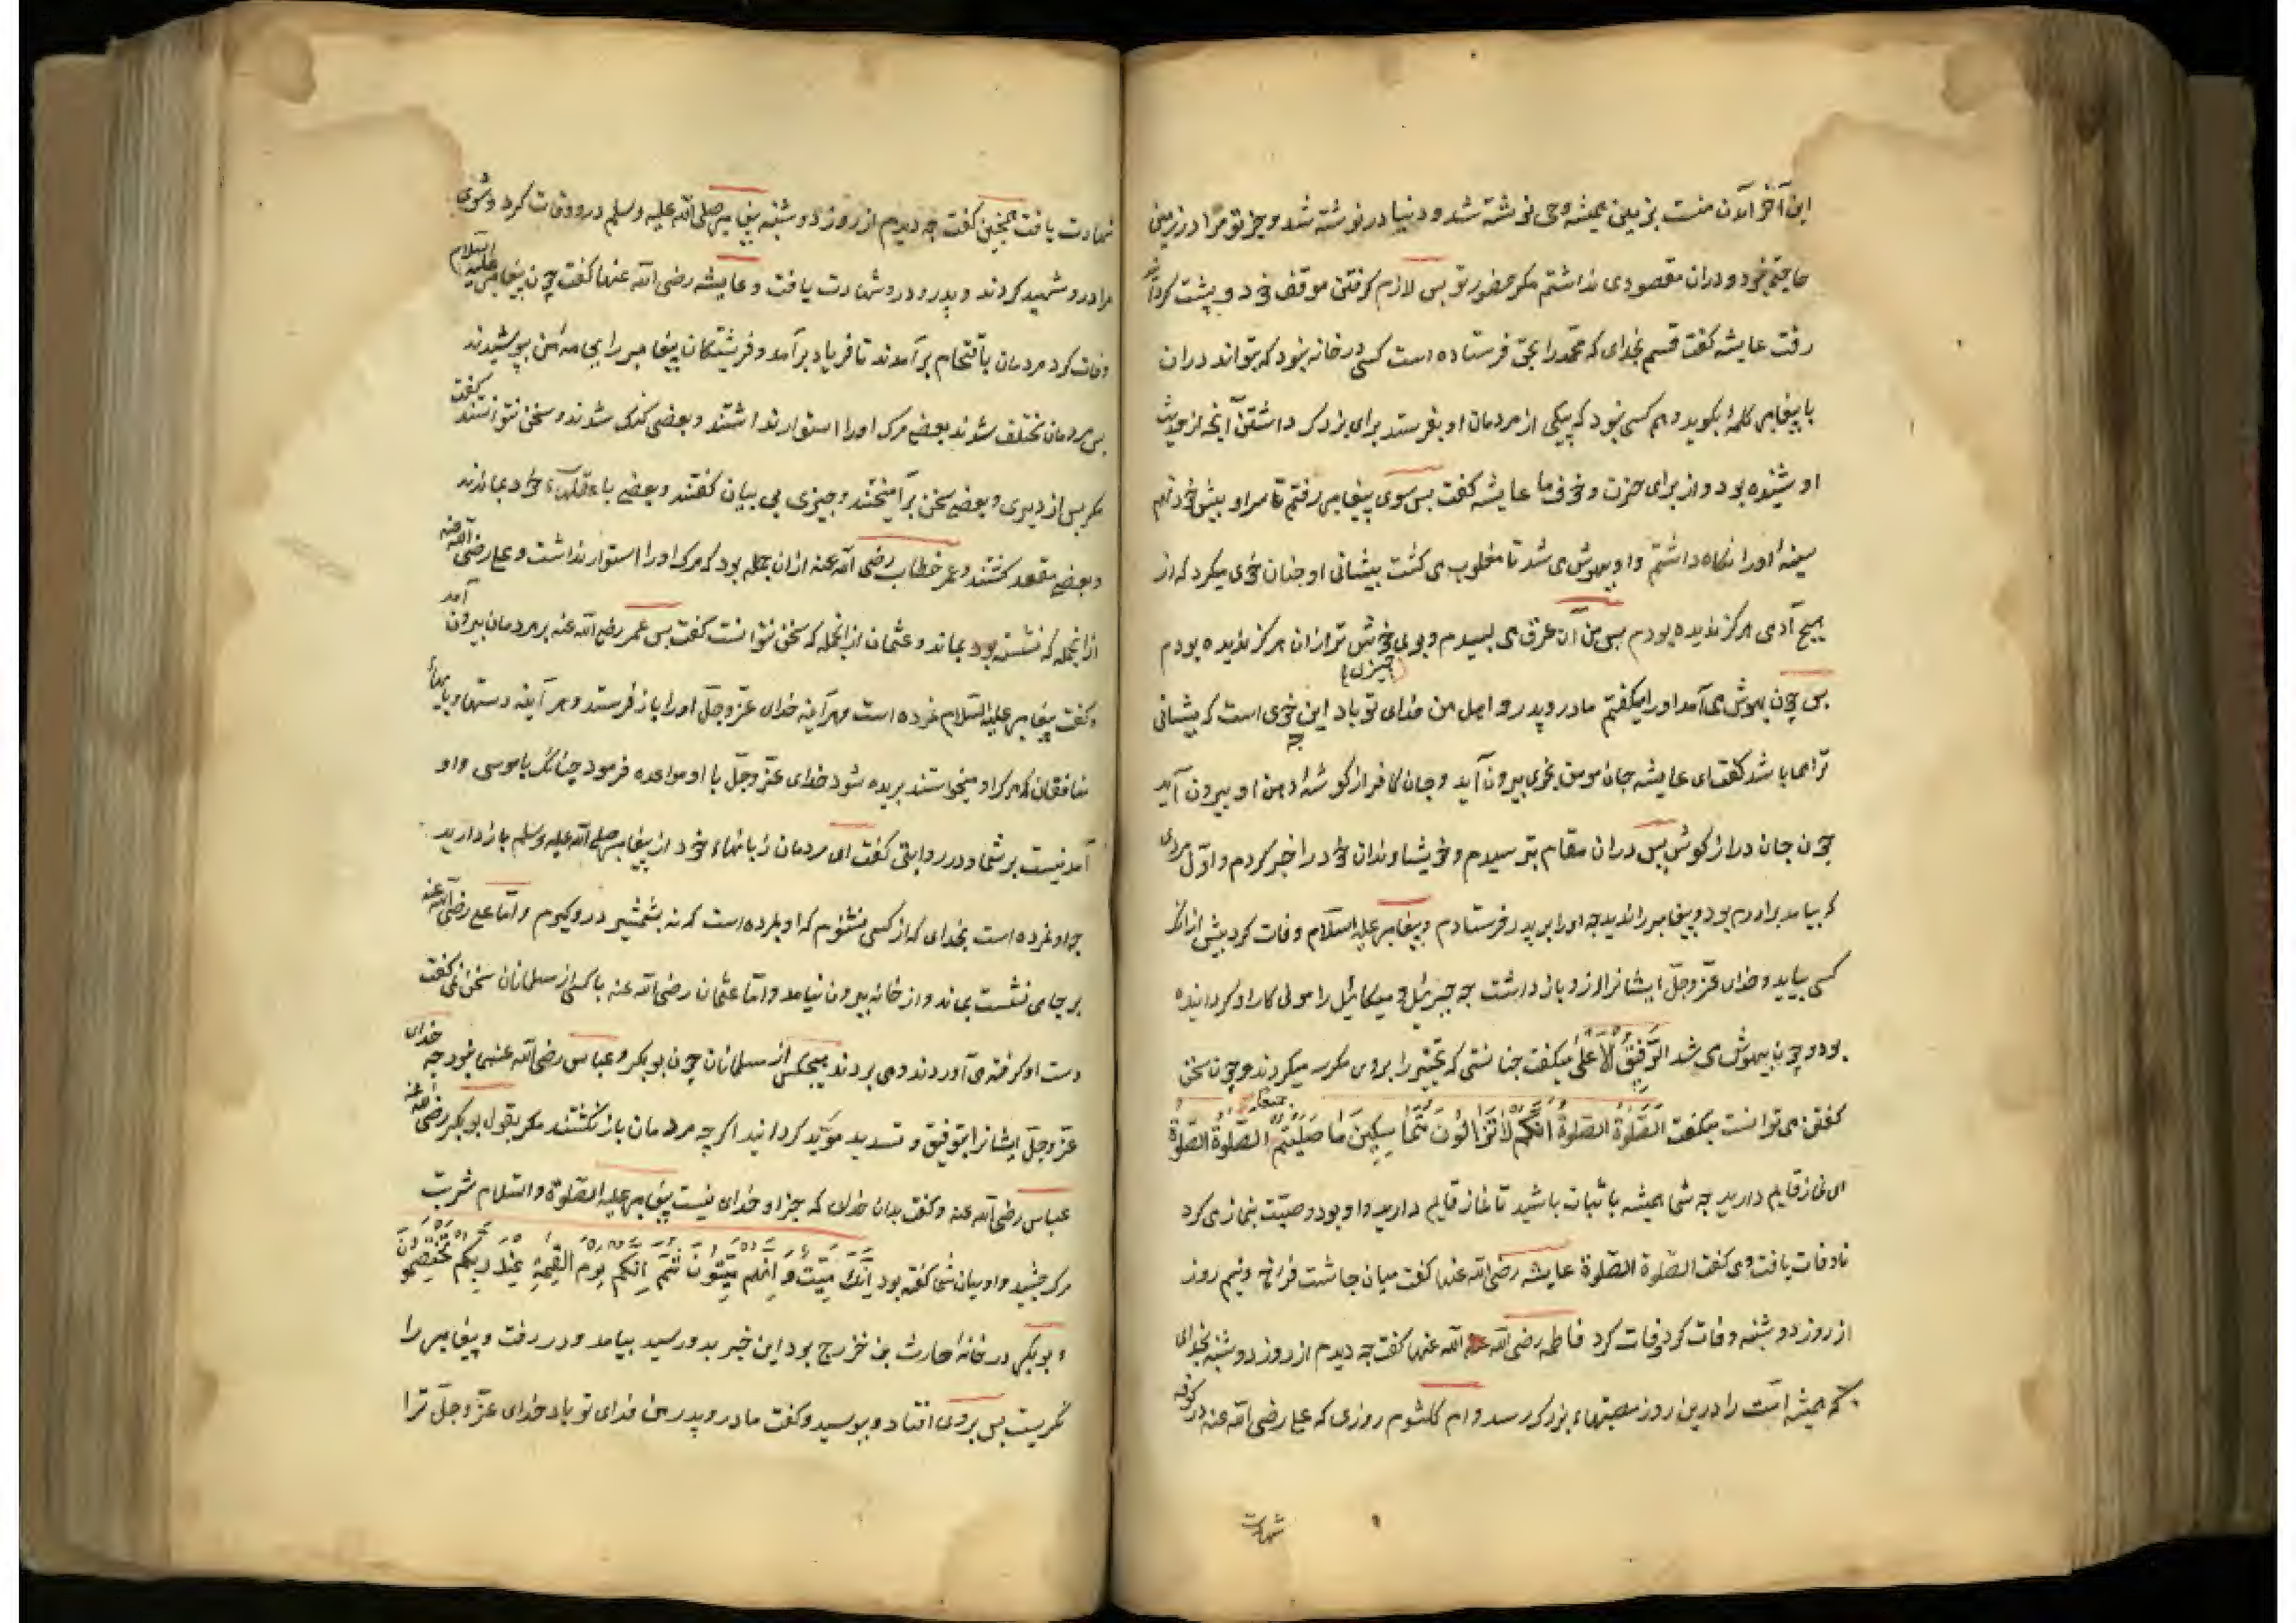 این آخر آمدن منست بزمین همیشه وحی نوشته شد و دنیا درنوشته شد و جز تو مرا در زمین
حاجتی نبود و دران مقصودی نداشتم مکر حضور تو پس لازم کرفتن موقف خود و پشت کردانید
رفت عایشه کفت قسم بخدای که محمد را بحق فرستاده است کسی در خانه نبود که بتواند دران
با پیغامبر کلمهٔ بکوید و هم کسی نبود که پیکی از مردمان او بفرستد برای بزرک داشتن آنچه از حدیث
او شنیده بود و از برای حزن و خوف ما عایشه کفت پس سوی پیغامبر رفتم تا سر او پیش خود نهم
سینهٔ او را نکاه داشتم و او بیهوش می شد تا مغلوب می کشت پیشانی او چنان خوی میکرد که از
هیچ آدمی هرکز ندیده بودم پس من آن عرق می لیسیدم و بوی خوش تر ازان هرکز ندیده بودم
پس چون بهوش می آمد او را میکفتم مادر و پدر و اهل من فدای تو باد این چه خوی است که پیشانی
ترا همی باشد کفت ای عایشه جان مومن بخوی بیرون آید و جان کافر از کوشهٔ دهن او بیرون آید
چون جان درازکوش پس دران مقام بترسیدم و خویشاوندان خود را خبر کردم و اول مردی
که بیامد برادرم بود و پیغامبر را ندید چه او را بر پدر فرستادم و پیغامبر علیه السلام وفات کرد پیش ازانکه
کسی بیاید و خدای عز و جل ایشانرا ازو باز داشت چه جبرئیل و میکائیل را مولی کار او کردانیده
بود و چون بیهوش می شد الرفیق الاعلی میکفت چنانستی که تخییر را بروی مکرر میکردند و چون سخن
کفتن می توانست میکفت الصلوة الصلوة انکم لا تزالون متماسکین ما صلیتم الصلوة الصلوة
ای نماز قایم دارید چه شما همیشه با ثبات باشید تا نماز قایم دارید و او بود وصیت بنماز می کرد
تا وفات یافت و می کفت الصلوة الصلوة عایشه رضی الله عنها کفت میان چاشت فراخ و نیم روز
از روز دوشنبه وفات کرد وفات کرد فاطمه رضی الله عنها کفت چه دیدم از روز دوشنبه بخدای
که همیشه امت را درین روز مصیبتهاء بزرک رسد و ام کلثوم روزی که علی رضی الله عنه در کوفه
شهادت
شهادت یافت همچنین کفت چه دیدم از روز دوشنبه پیغامبر صلی الله علیه وسلم درو وفات کرد و شوی
مرا درو شهید کردند و پدرم درو شهادت یافت و عایشه رضی الله عنها کفت چون پیغامبر علیه السلام
وفات کرد مردمان باقتحام برآمدند تا فریاد برآمد و فرشتکان پیغامبر را بجامه من بپوشیدند
پس مردمان مختلف شدند بعضی مرک او را استوار نداشتند و بعضی کنک شدند و سخن نتوانستند کفت
مکر پس از دیری و بعضی سخن برآمیختند و چیزی بی بیان کفتند و بعضی با عقلهاء خود بماندند
و بعضی مقعد کشتند و عمر خطاب رضی الله عنه ازان جمله بود که مرک او را استوار نداشت و علی رضی الله عنه
ازانجمله که نشسته بود بماند و عثمان ازانجمله که سخن نتوانست کفت پس عمر رضی الله عنه بر مردمان بیرون آمد
و کفت پیغامبر علیه السلام نمرده است و هرآینه خدای عز و جل او را باز فرستد و هرآینه دستها و پایهاء
منافقان که مرک او میخواستند بریده شود خدای عز و جل با او مواعده فرمود چنانک با موسی و او
آمدنیست بر شما و در روایتی کفت ای مردمان زبانهاء خود از پیغامبر صلی الله علیه وسلم باز دارید
چه او نمرده است بخدای که از کسی نشنوم که او بمرده است که نه بشمشیر درو کیرم و اما علی رضی الله عنه
بر جای نشست بماند و از خانه بیرون نیامد و اما عثمان رضی الله عنه با کسی از مسلمانان سخن نمی کفت
دست او کرفته می آوردند و می بردند هیچکس از مسلمانان چون بوبکر و عباس رضی الله عنهما نبود چه خدای
عز و جل ایشانرا بتوفیق و تسدید موید کردانید اکرچه مردمان باز نکشتند مکر بقول بوبکر رضی الله عنه
عباس رضی الله عنه و کفت بدان خدای که جز او خدای نیست پیغامبر علیه الصلوة والسلام شربت
مرک چشید و او میان شما کفته بود انک میت و انهم میتون ثم انکم یوم القیمة عند ربکم تختصمون
و بوبکر در خانهٔ حارث بن خزرج بود این خبر بدو رسید بیامد و در رفت و پیغامبر را
نکریست پس بروی افتاد و ببوسید و کفت مادر و پدر من فدای تو باد خدای عز و جل ترا